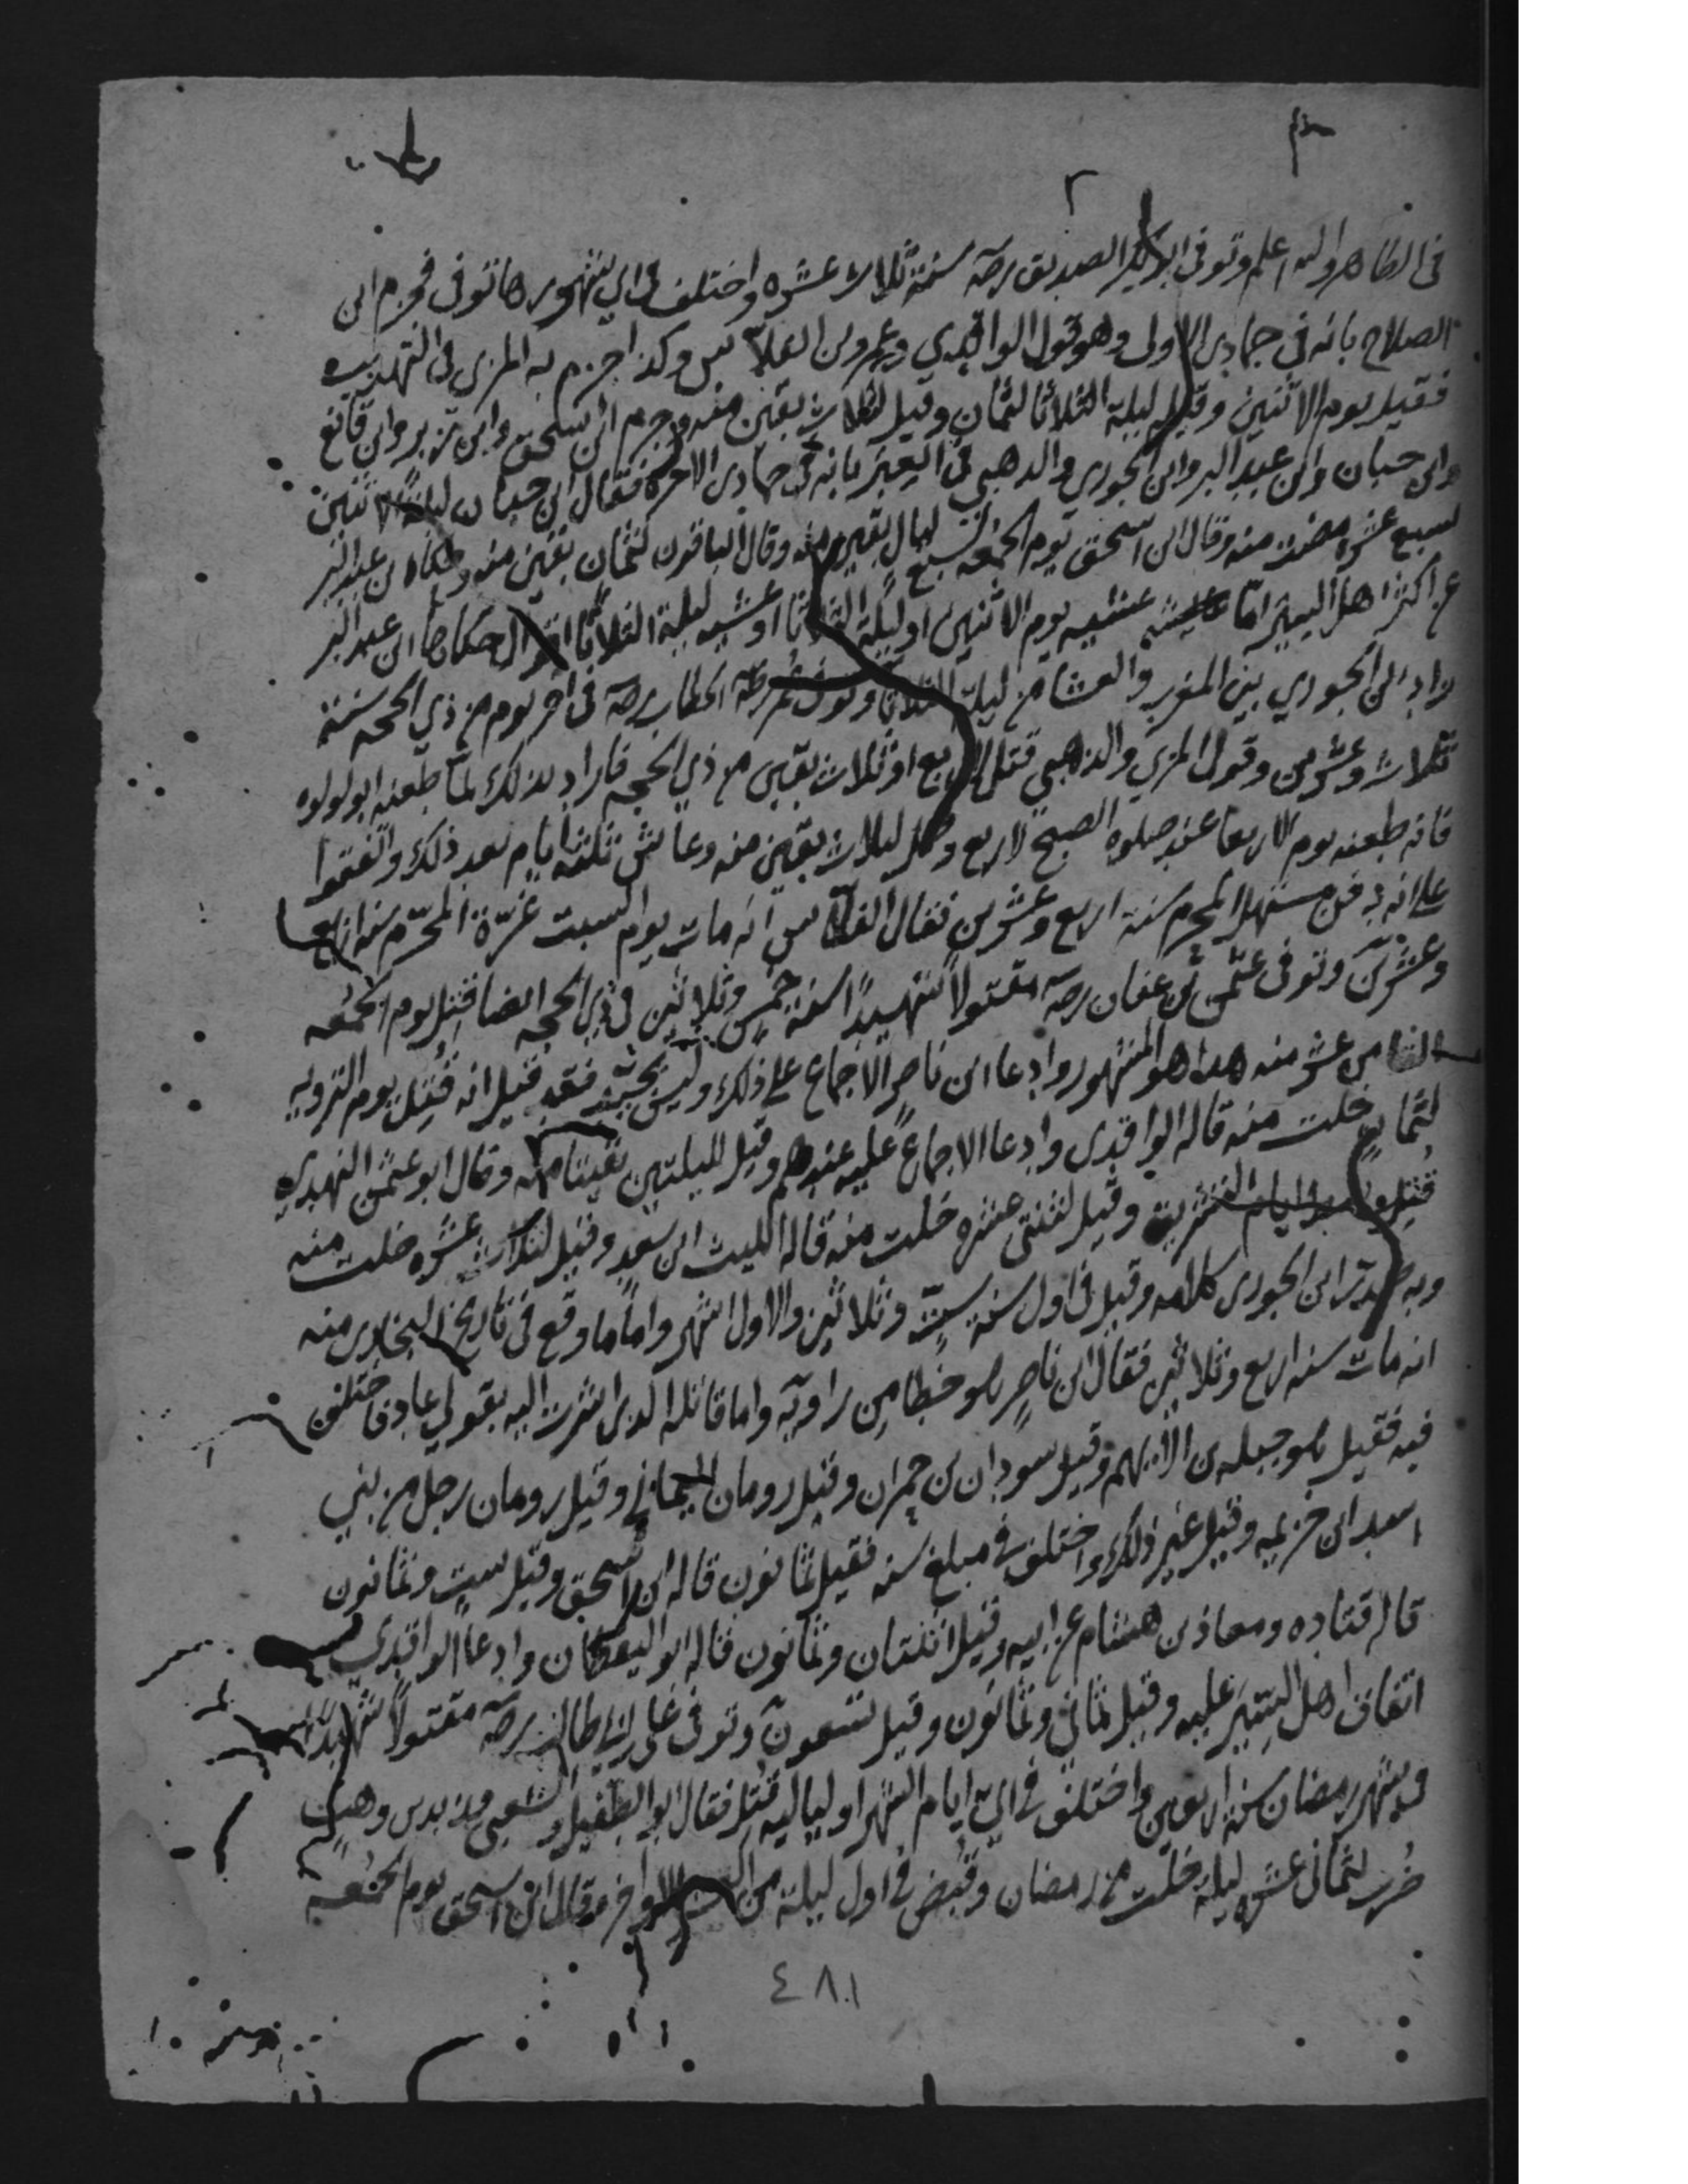 في الظاهر والله اعلم وتوفي ابو بكر الصديق رضه سنة ثلاث عشره واختلف في اي شهورها توفي فجزم ابن
الصلاح بانه في جمادى الاولى وهو قول الواقدي وعمرو بن الفلاس وكذا جزم به المزي في التهذيب
فقيل يوم الاثنين وقيل ليلة الثلاثا لثمان وقيل لثلاث بقين منه وجزم ابن اسحق وابن زبر وابن قانع
وابن حبان وابن عبد البر وابن الجوزي والذهبي في العبر بانه في جمادى الاخره فقال ابن حبان ليلة الاثنين
لسبع عشره مضت منه وقال ابن اسحق يوم الجمعه لسبع ليال بقين منه وقال الباقون لثمان بقين منه وحكاه بن عبد البر
عن اكثر اهل السير اما عشيه يوم الاثنين او ليلة الثلاثا او عشيه ليلة الثلاثا اقوال حكاها ابن عبد البر
زاد ابن الجوزي بين المغرب والعشا من ليلة الثلاثا وتوفي عمر بن الخطاب رضه في اخر يوم من ذي الحجه سنة
ثلاث وعشرين وقول المزي والذهبي قتل لاربع او ثلاث بقين من ذي الحجه فاراد بذلك لما طعنه ابو لولوه
فانه طعنه يوم الاربعا عند صلوه الصبح لاربع وقيل لثلاث بقين منه وعاش ثلثة ايام بعد ذلك واتفقوا
على انه دفن مستهل المحرم سنة اربع وعشرين فقال الفلاس انه مات يوم السبت غرة المحرم سنه اربع
وعشرين وتوفي عثمن بن عفان رضه مقتولا شهيدا سنة خمس وثلاثين في ذي الحجه ايضا قتل يوم الجمعه
الثامن عشر منه هذا هو المشهور وادعا ابن ناصر الاجماع على ذلك وليس بجيد فقد قيل انه قتل يوم الترويه
لثمان خلت منه قاله الواقدي وادعا الاجماع عليه عندهم وقيل لليلتين بقيتا منه وقال ابو عثمن النهدي
قتل وسط ايام التشريق وقيل لثنتي عشره خلت منه قاله الليث ابن سعد وقيل لثلاث عشره خلت منه
وبه صدر ابن الجوزي كلامه وقيل في اول سنة ست وثلاثين والاول اشهر واما ما وقع في تاريخ البخاري منه
انه مات سنه اربع وثلاثين فقال ابن ناصر هو خطا من راويه واما قاتله الذي اشرت اليه بقولي عاد فاختلف
فيه فقيل هو جبله بن الايهم وقيل سودان بن حمران وقيل رومان اليماني وقيل رومان رجل من بني
اسد ابن خزيمه وقيل غير ذلك واختلف في مبلغ سنه فقيل ثمانون قاله ابن اسحق وقيل ست وثمانون
قاله قتاده ومعاذ بن هشام عن ابيه وقيل اثنتان وثمانون قاله ابو اليقظان وادعا الواقدي
اتفاق اهل السير عليه وقيل ثماني وثمانون وقيل تسعون وتوفي علي ابن ابي طالب رضه مقتولا شهيدا
في شهر رمضان سنة اربعين واختلف في اي ايام الشهر او لياليه قتل فقال ابو الطفيل والشعبي وزيد بن وهب
ضرب لثماني عشره ليلة خلت من رمضان وقبض في اول ليلة من العشر الاواخر وقال ابن اسحق يوم الجمعه
٤٨١